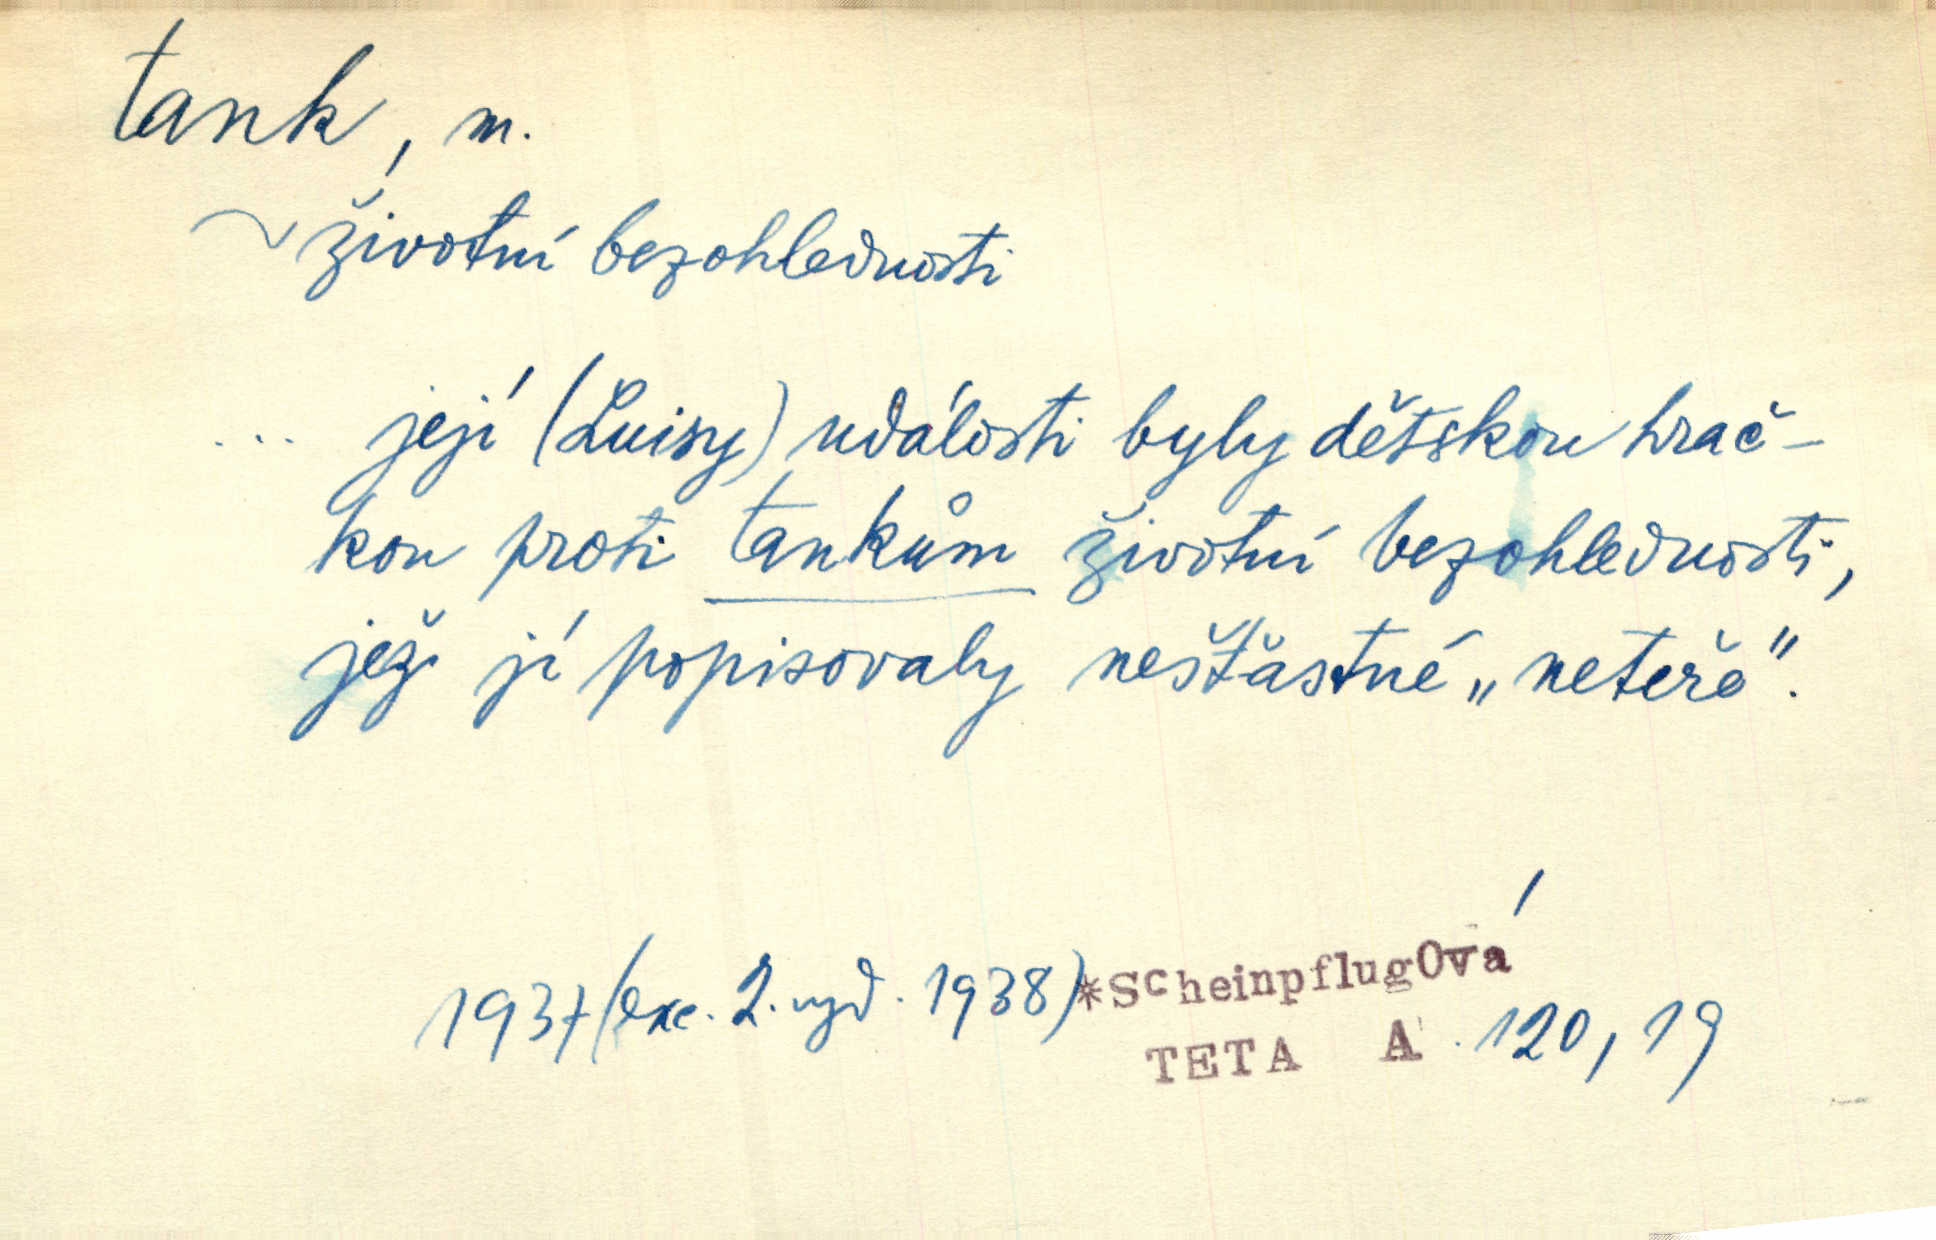 tank, m.
~ životní bezohlednosti
... její (Luisy) události byly dětskou hrač-
kou proti tankům životní bezohlednosti,
jež jí popisovaly nešťastné „neteře".
1937 (exc. 2. vyd. 1938) *Scheinpflugová
TETA A 120, 19